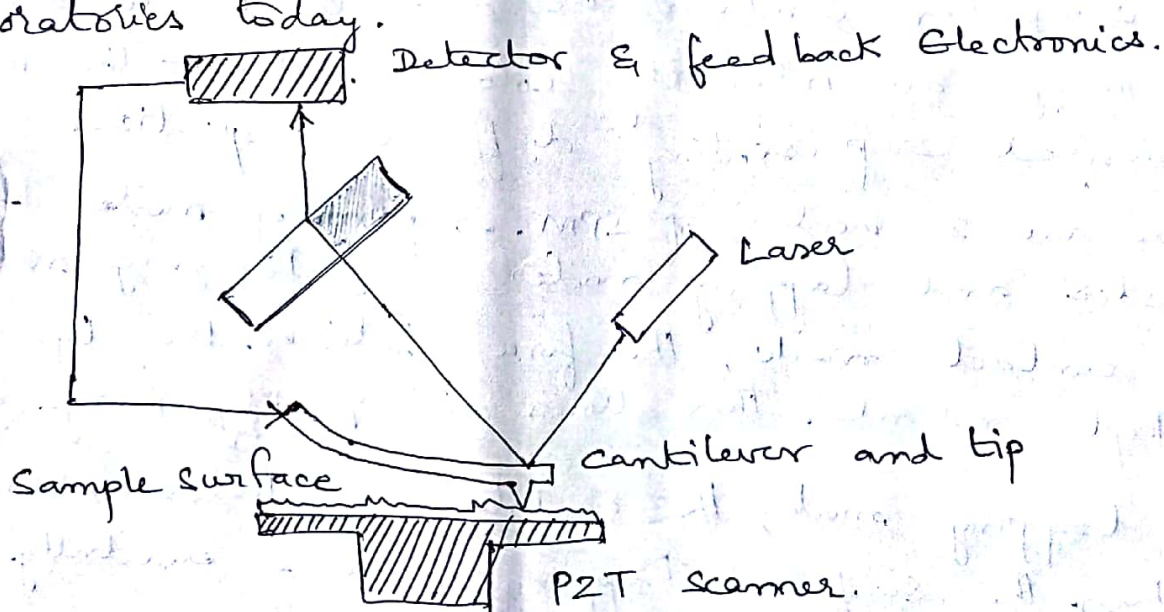 oratories today.
Detector & feed back Electronics.
Laser
Cantilever and tip
Sample Surface
PZT scanner.